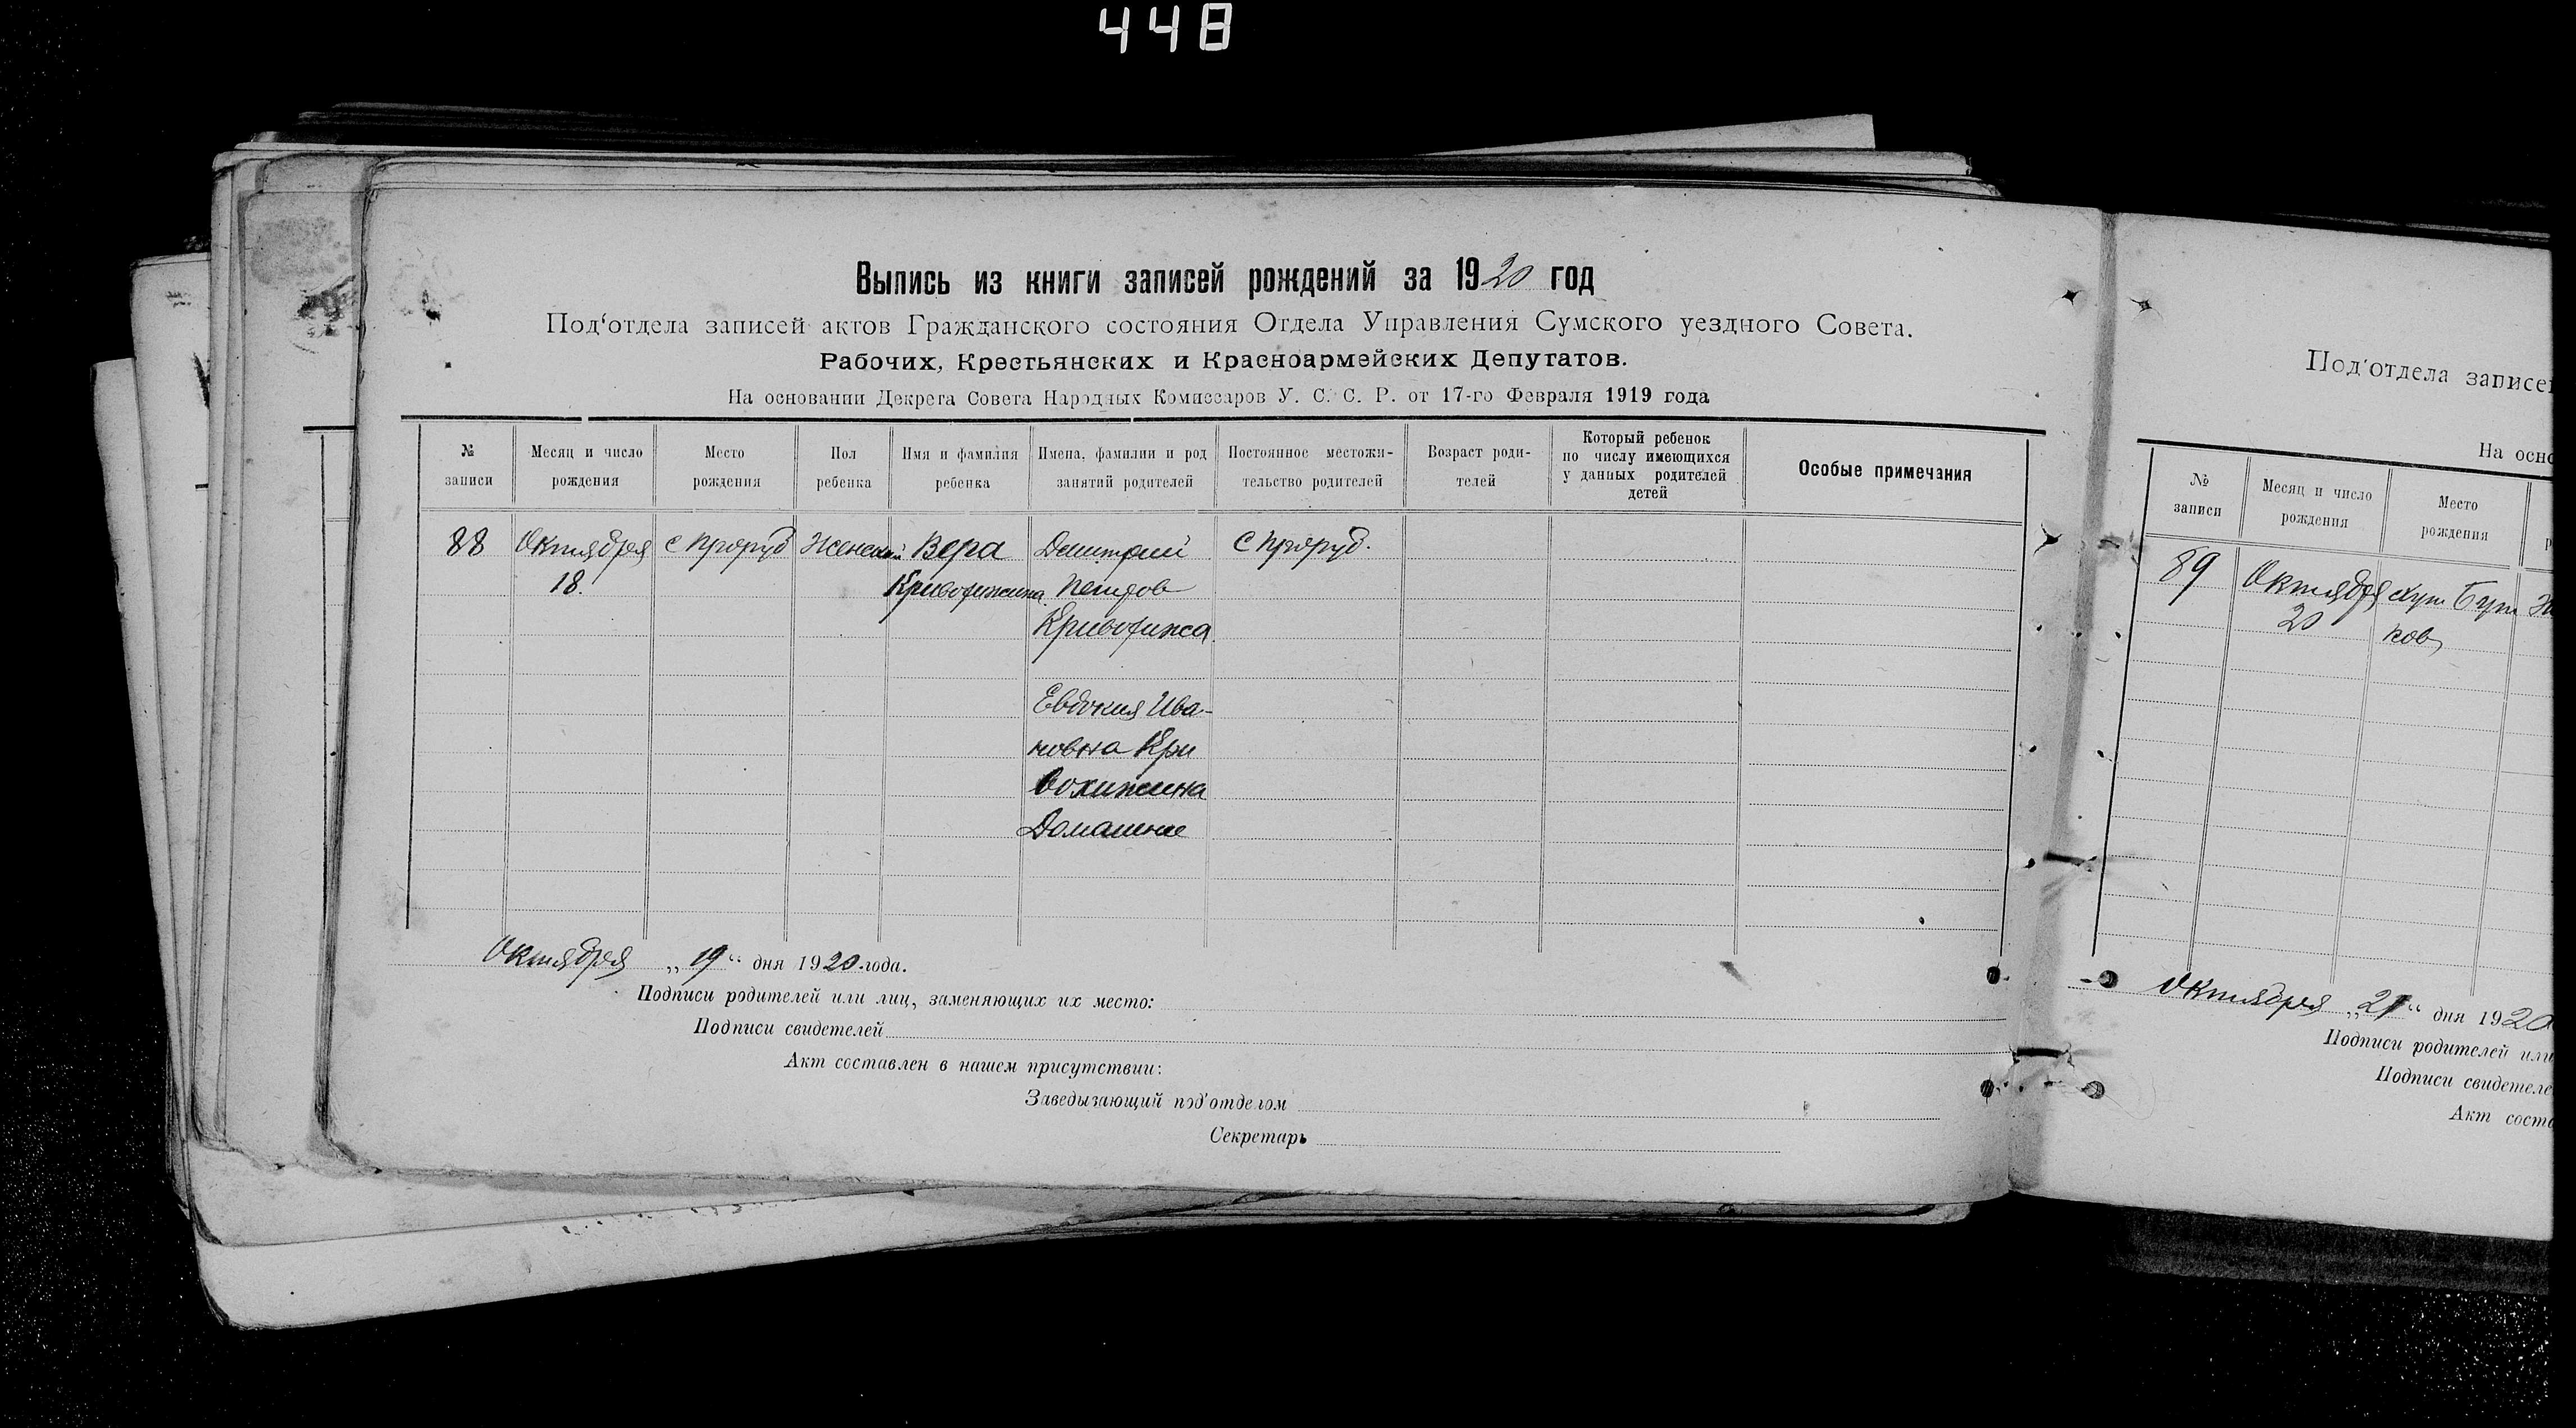 448
Выпись из книги записей рождений за 1920 год
Под‘отдела записей актов Гражданского состояния Отдела Управления Сумского уездного Совета.
Рабочих, Крестьянских и Красноармейских Депутатов.
На основании Декрета Совета Народных Комиссаров У. С. С. Р. от 17-го Февраля 1919 года
№ записи
Месяц и число рождения
Место рождения
Пол ребенка
Имя и фамилия ребенка
Имена, фамилии и род занятий родителей
Постоянное местожи-
тельство родителей
Возраст роди-
телей
Который ребенок
по числу имеющихся
у данных родителей
детей
Особые примечания
88
Октября
18.
с Проруб
Женский
Вера
Дмитрий
Петров
Евдокия Ива-
новна Кри
вохижина
Домашние
С Проруб.
Октября „19“ дня 1920 года.
Подписи родителей или лиц, заменяющих их место:
Подписи свидетелей
Акт составлен в нашем присутствии:
Заведывающий под'отделом
Секретарь
Под'отдела записей
На осно
№ записи
Месяц и число рождения
Место рождения
89
Октября
20
хут Бут
ков
Октября „21“ дня 1920
Подписи родителей или
Подписи свидетеле
Акт соста